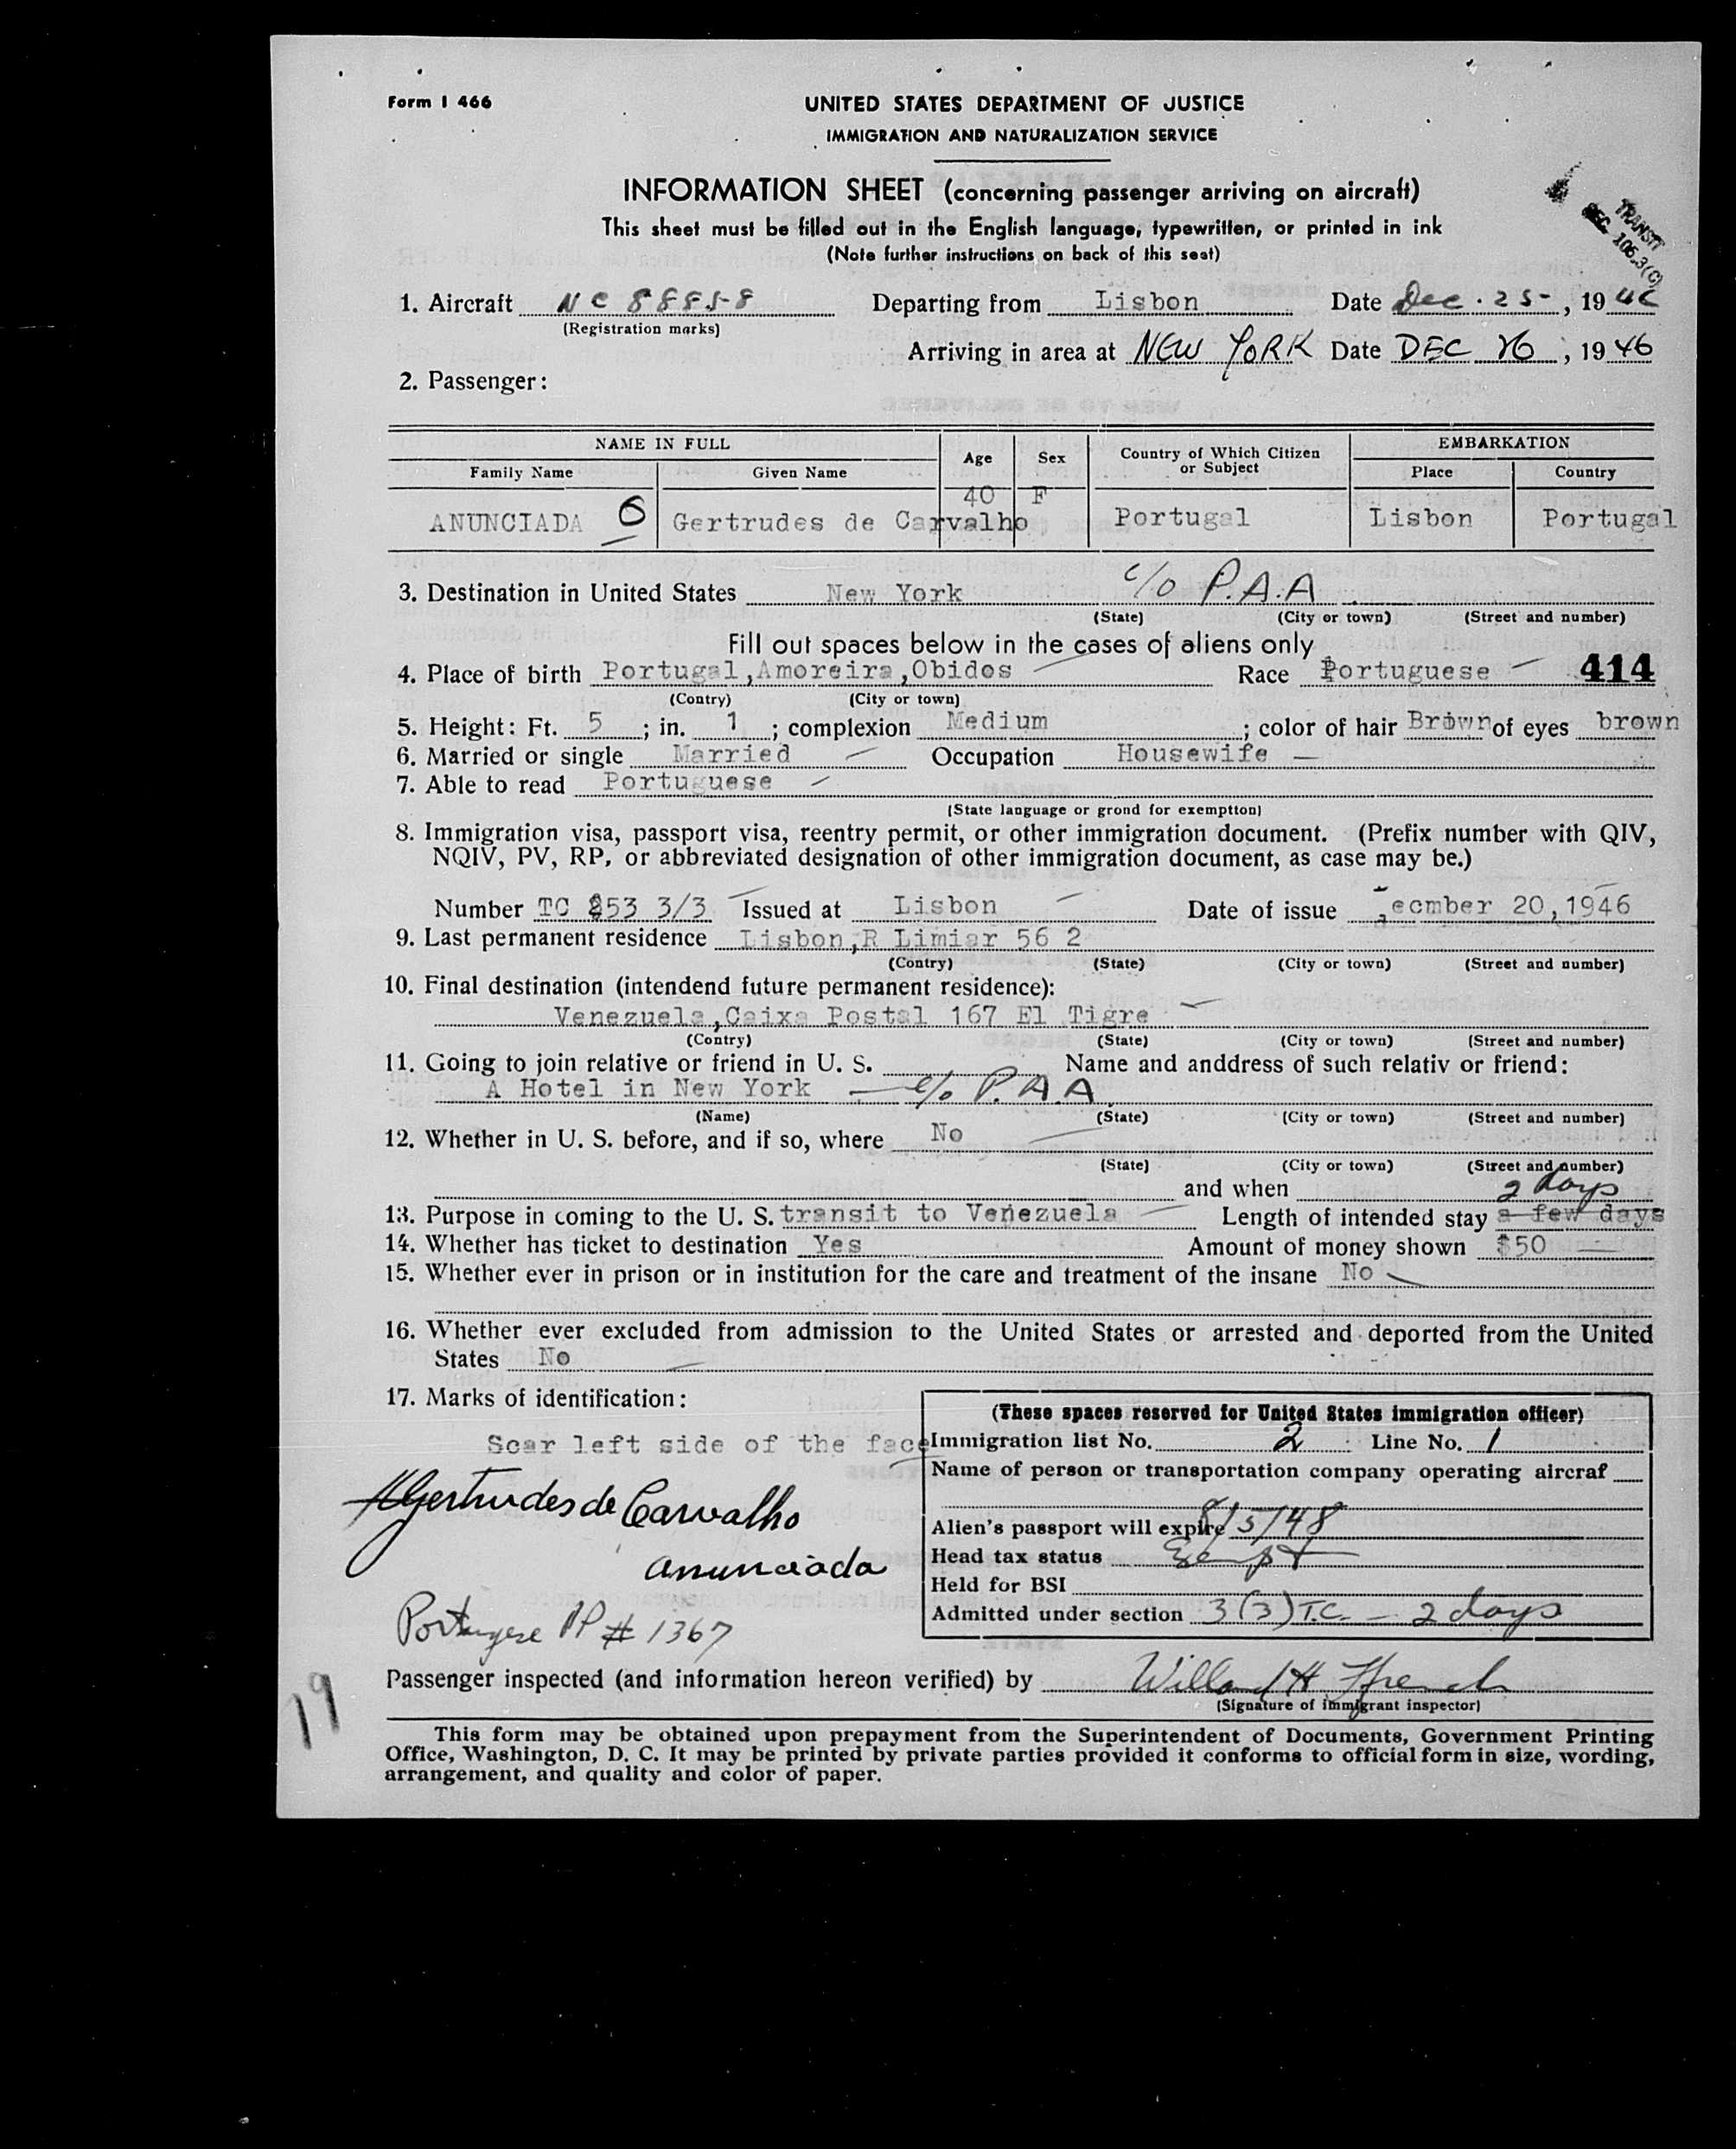 Form I 466
UNITED STATES DEPARTMENT OF JUSTICE
IMMIGRATION AND NATURALIZATION SERVICE
INFORMATION SHEET (concerning passenger arriving on aircraft)
This sheet must be filled out in the English language, typewritten, or printed in ink
(Note further instructions on back of this seet)
TRANSIT
SEC. 106.3(C)
1. Aircraft NC 88858 Departing from Lisbon Date Dec. 25, 1946
(Registration marks)
Arriving in area at NEW YORK Date DEC 26, 1946
2. Passenger:
NAME IN FULL Age Sex Country of Which Citizen or Subject EMBARKATION
Family Name Given Name Place Country
40 F
ANUNCIADA 6 Gertrudes de Carvalho Portugal Lisbon Portugal
3. Destination in United States New York c/o P.A.A
(State) (City or town) (Street and number)
Fill out spaces below in the cases of aliens only
4. Place of birth Portugal,Amoreira,Obidos Race Portuguese 414
(Contry) (City or town)
5. Height: Ft. 5 ; in. 1 ; complexion Medium ; color of hair Brown of eyes brown
6. Married or single Married Occupation Housewife
7. Able to read Portuguese
(State language or grond for exemptton)
8. Immigration visa, passport visa, reentry permit, or other immigration document. (Prefix number with QIV,
NQIV, PV, RP, or abbreviated designation of other immigration document, as case may be.)
Number TC 253 3/3 Issued at Lisbon Date of issue ecmber 20,1946
9. Last permanent residence Lisbon,R Limiar 56 2
(Contry) (State) (City or town) (Street and number)
10. Final destination (intendend future permanent residence):
Venezuela,Caixa Postal 167 El Tigre
(Contry) (State) (City or town) (Street and number)
11. Going to join relative or friend in U. S. Name and anddress of such relativ or friend:
A Hotel in New York c/o P.A.A
(Name) (State) (City or town) (Street and number)
12. Whether in U. S. before, and if so, where No
(State) (City or town) (Street and number)
and when
2 days
13. Purpose in coming to the U. S. transit to Venezuela Length of intended stay a few days
14. Whether has ticket to destination Yes Amount of money shown $50
15. Whether ever in prison or in institution for the care and treatment of the insane No
16. Whether ever excluded from admission to the United States or arrested and deported from the United
States No
17. Marks of identification:
Scar left side of the face
(These spaces reserved for United States immigration officer)
Immigration list No. 2 Line No. 1
Name of person or transportation company operating aircraf
Alien's passport will expire 8/5/48
Head tax status Exempt
Held for BSI
Admitted under section 3(3) T.C. - 2 days
Gertrudes de Carvalho
Anunciada
Portugese PP # 1367
19
Passenger inspected (and information hereon verified) by Willard H French
(Signature of immigrant inspector)
This form may be obtained upon prepayment from the Superintendent of Documents, Government Printing
Office, Washington, D. C. It may be printed by private parties provided it conforms to official form in size, wording,
arrangement, and quality and color of paper.